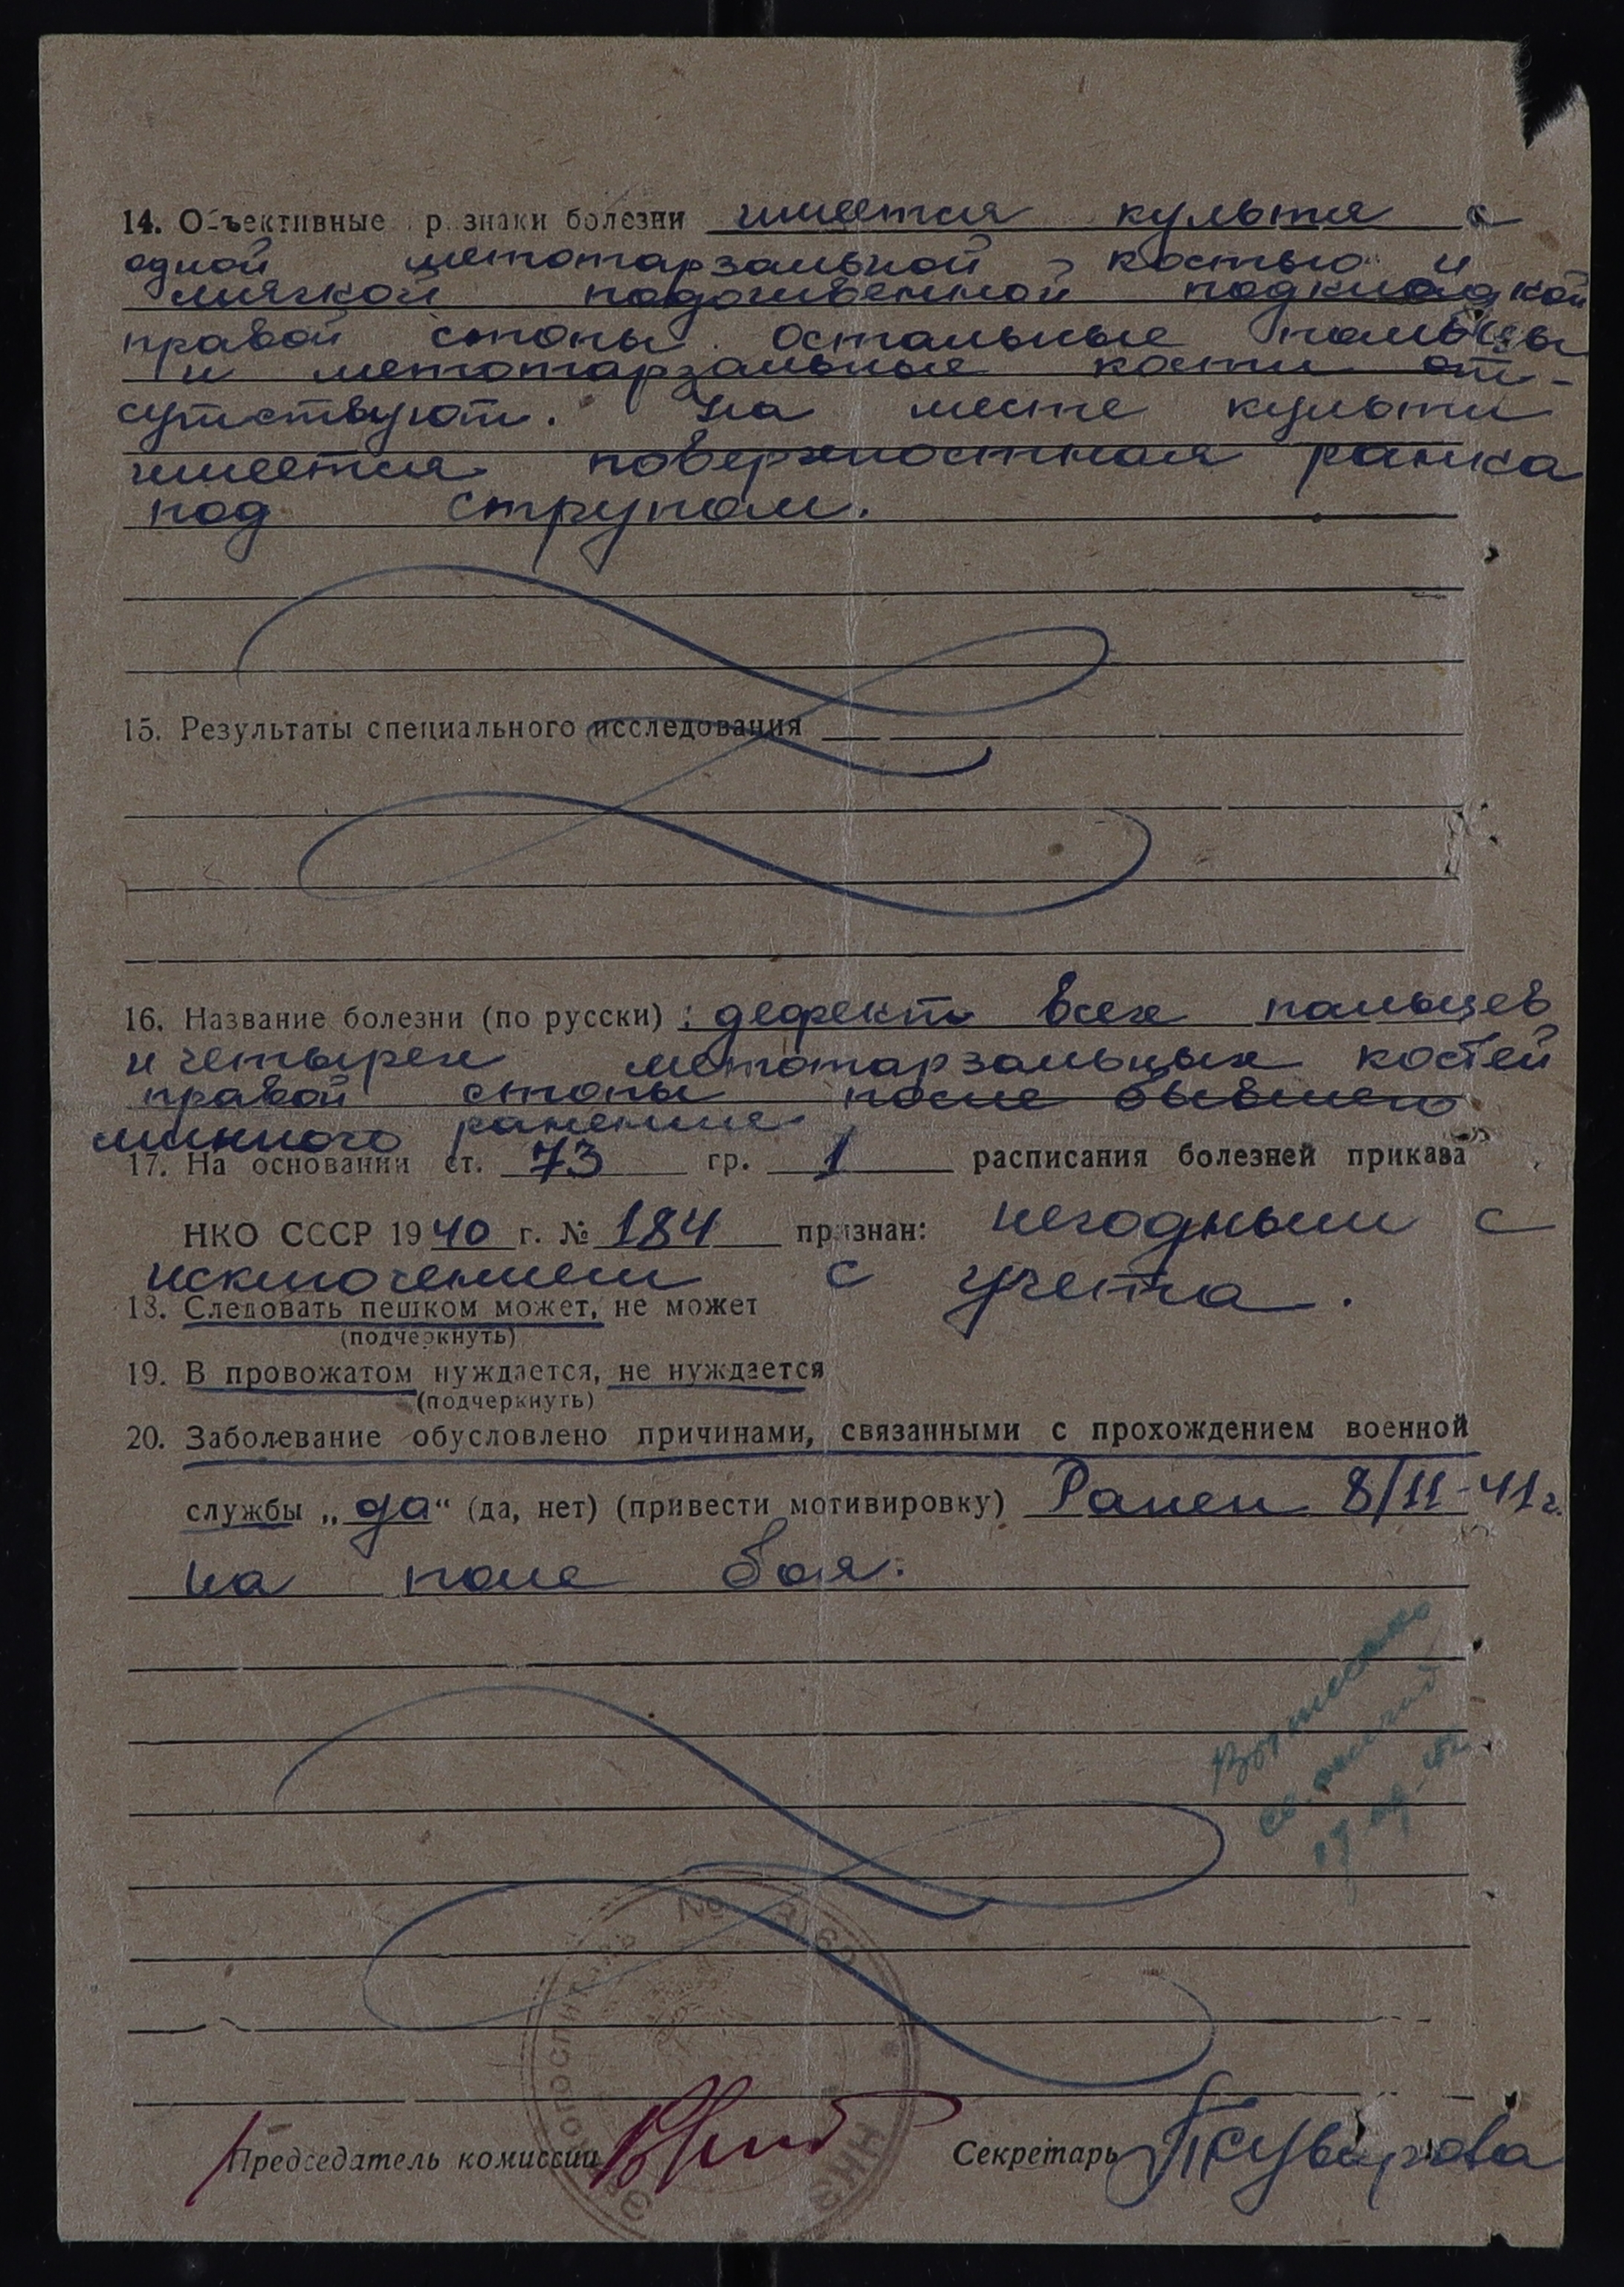 14. Объективные признаки болезни имеется культя с
одной метотарзальной костью и
мягкой подошвенной подкладкой
правой стопы. Остальные пальцы
и метотарзальные кости от-
сутствуют. На месте культи
имеется поверхностная ранка
под струпом.
15. Результаты специального исследования
16. Название болезни (по русски): дефект всех пальцев
и четырех метотарзальных костей
правой стопы после бывшего
минного ранения
17. На основании ст. 73 гр. 1 расписания болезней приказа
НКО СССР 1940 г. № 184 признан: негодным с
исключением с учета.
18. Следовать пешком может, не может
(подчеркнуть)
19. В провожатом нуждается, не нуждается
(подчеркнуть)
20. Заболевание обусловлено причинами, связанными с прохождением военной
службы „да“ (да, нет) (привести мотивировку) Ранен 8/11-41г.
на поле боя.
Эвакогоспиталь №
НКЗ
Председатель комиссии
Секретарь